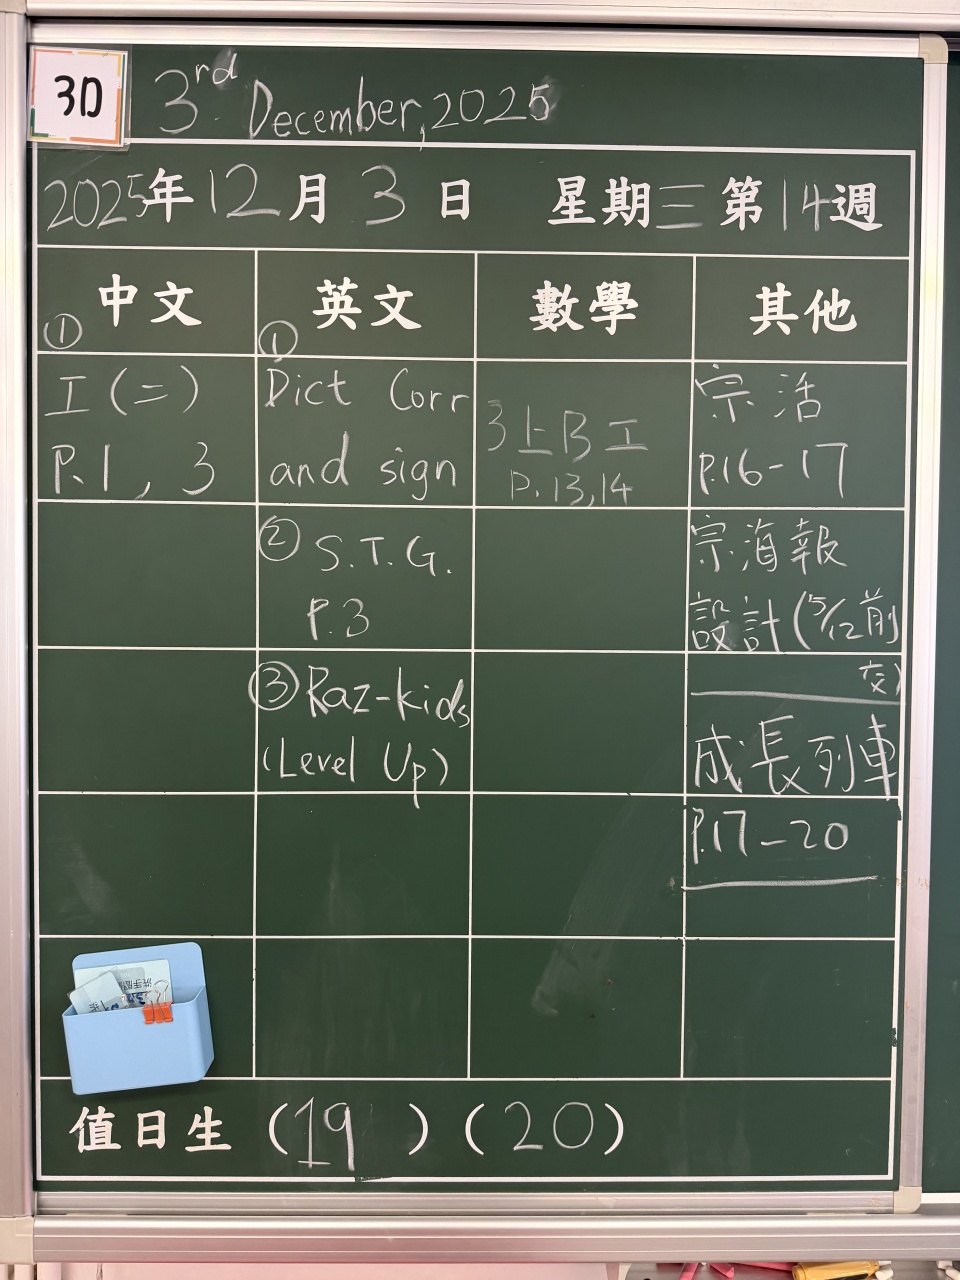 3D
3rd December, 2025
2025年12月3日 星期三第14週
中文 英文 數學 其他
① ①
工(二)
P.1, 3
Dict Corr
and sign
② S.T.G.
P.3
③ Raz-kids
(Level Up)
3上B工
P.13,14
宗活
P.16-17
宗海報
設計(5/12前
交)
成長列車
P.17-20
值日生 (19) (20)